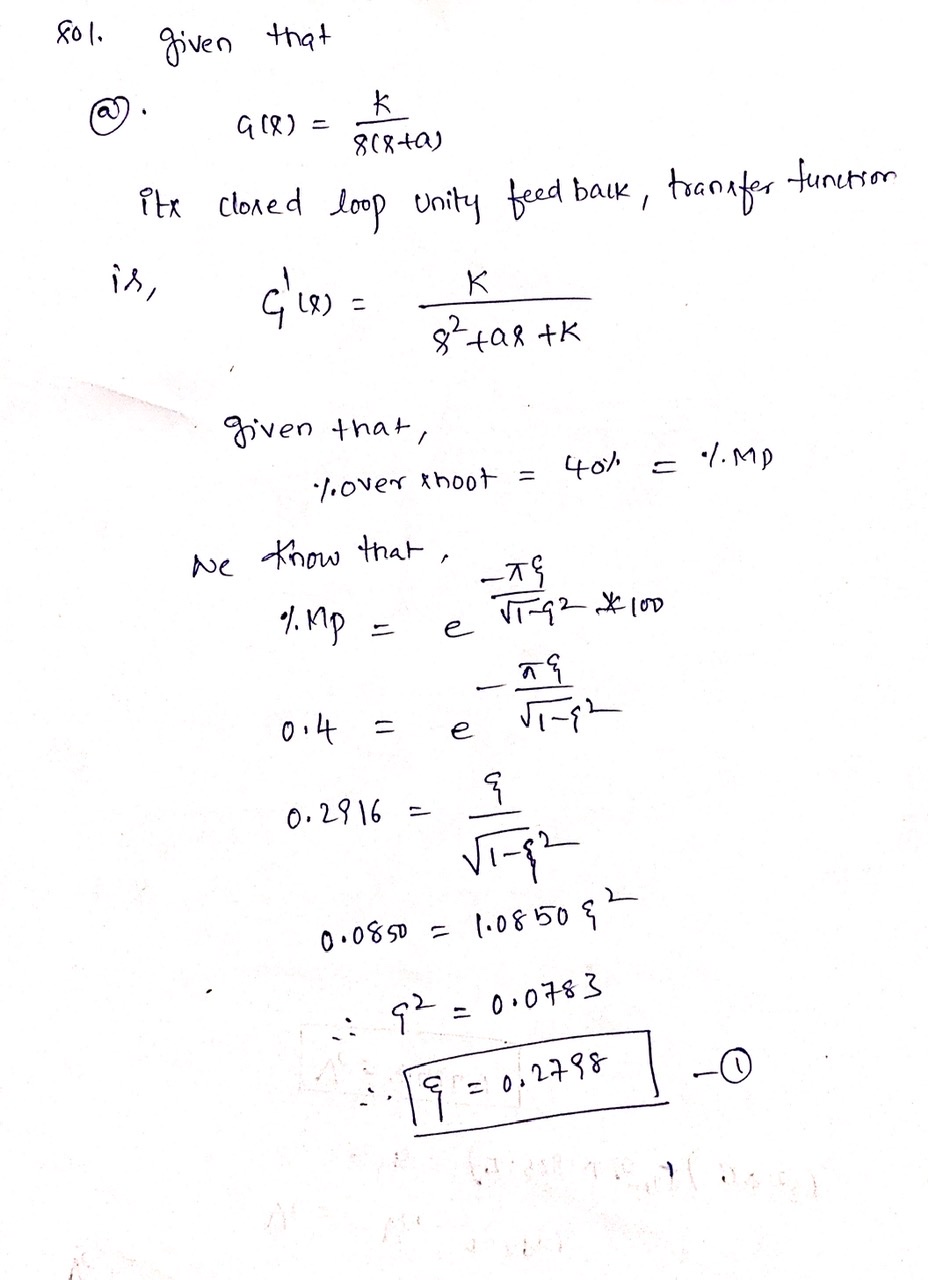 Sol. given that
(a). G(s) = K / s(s+a)
its closed loop unity feed back, transfer function
is, G'(s) = K / s²+as+K
given that,
% over shoot = 40% = %.Mp
We know that,
%.Mp = e^(-πξ / √1-ξ²) * 100
0.4 = e^(-πξ / √1-ξ²)
0.2916 = ξ / √1-ξ²
0.0850 = 1.0850 ξ²
∴ ξ² = 0.0783
∴ ξ = 0.2798 -①